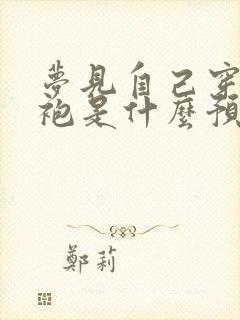 夢見自己穿
袍是什麼預
鄭莉